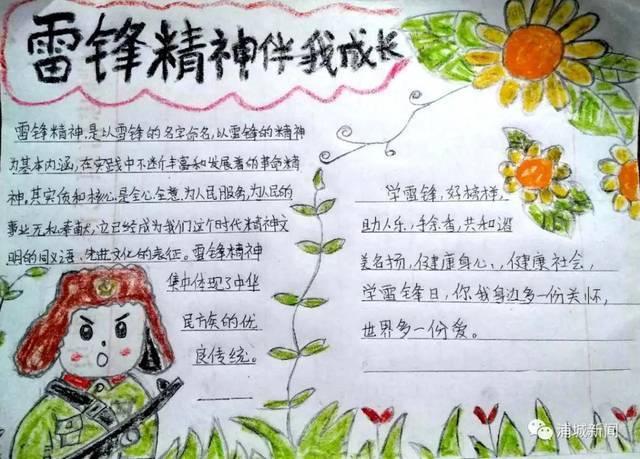 雷锋精神伴我成长
雷锋精神,是以雷锋的名字命名,以雷锋的精神
为基本内涵,在实践中不断丰富和发展着的革命精
神,其实质和核心是全心全意为人民服务,为人民的
事业无私奉献,它已经成为我们这个时代精神文
明的同义语、先进文化的表征。雷锋精神
集中体现了中华
民族的优
良传统。
学雷锋,好榜样,
助人乐,手余香,共和谐
美名扬,健康身心,健康社会,
学雷锋日,你我身边多一份关怀,
世界多一份爱。
浦城新闻